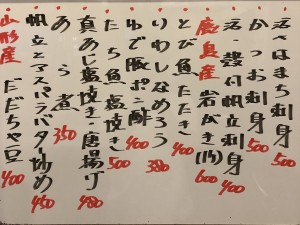 活〆はまち刺身 500
かつお刺身 500
活殻付帆立刺身 400
鹿島産 岩がき(1ヶ) 600
とび魚たたき 400
いわしなめろう 380
ゆで豚ポン酢 400
たち魚塩焼き 500
真あじ塩焼き・唐揚げ 480
あら煮 350
帆立とアスパラバター炒め 450
山形産 だだちゃ豆 400